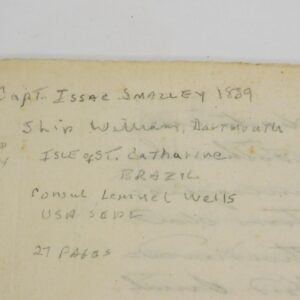 Capt. Issac Smalley 1839
Ship William, Dartmouth
Isle of St. Catharine
BRAZIL
Consul Lemuel Wells
USA
27 PAGES